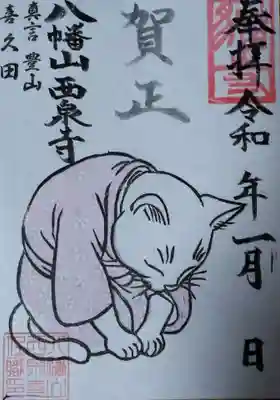 奉拝 令和 年 一月 日
賀正
八幡山 西泉寺
真言 豊山
喜久田